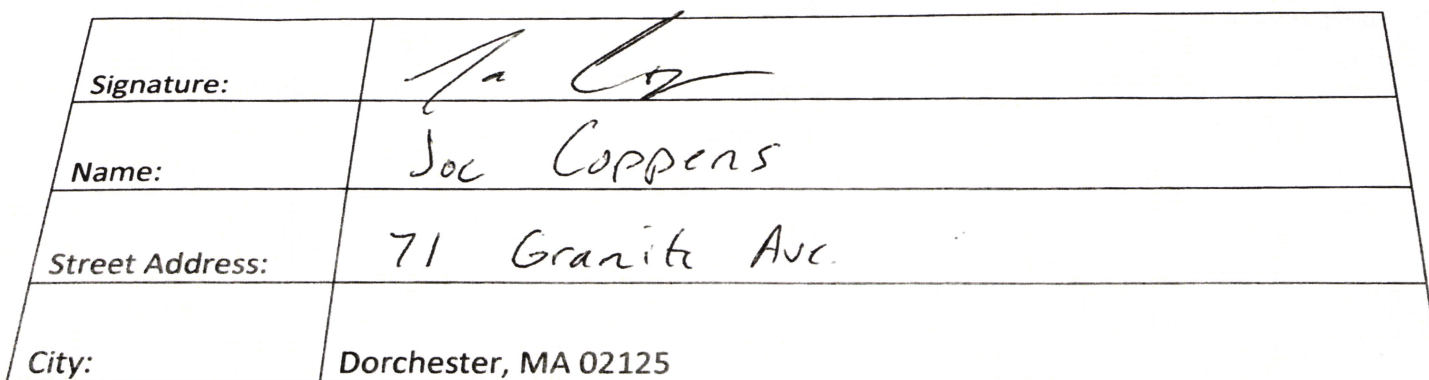 Signature:
Name: Joe Coppens
Street Address: 71 Granite Ave.
City: Dorchester, MA 02125